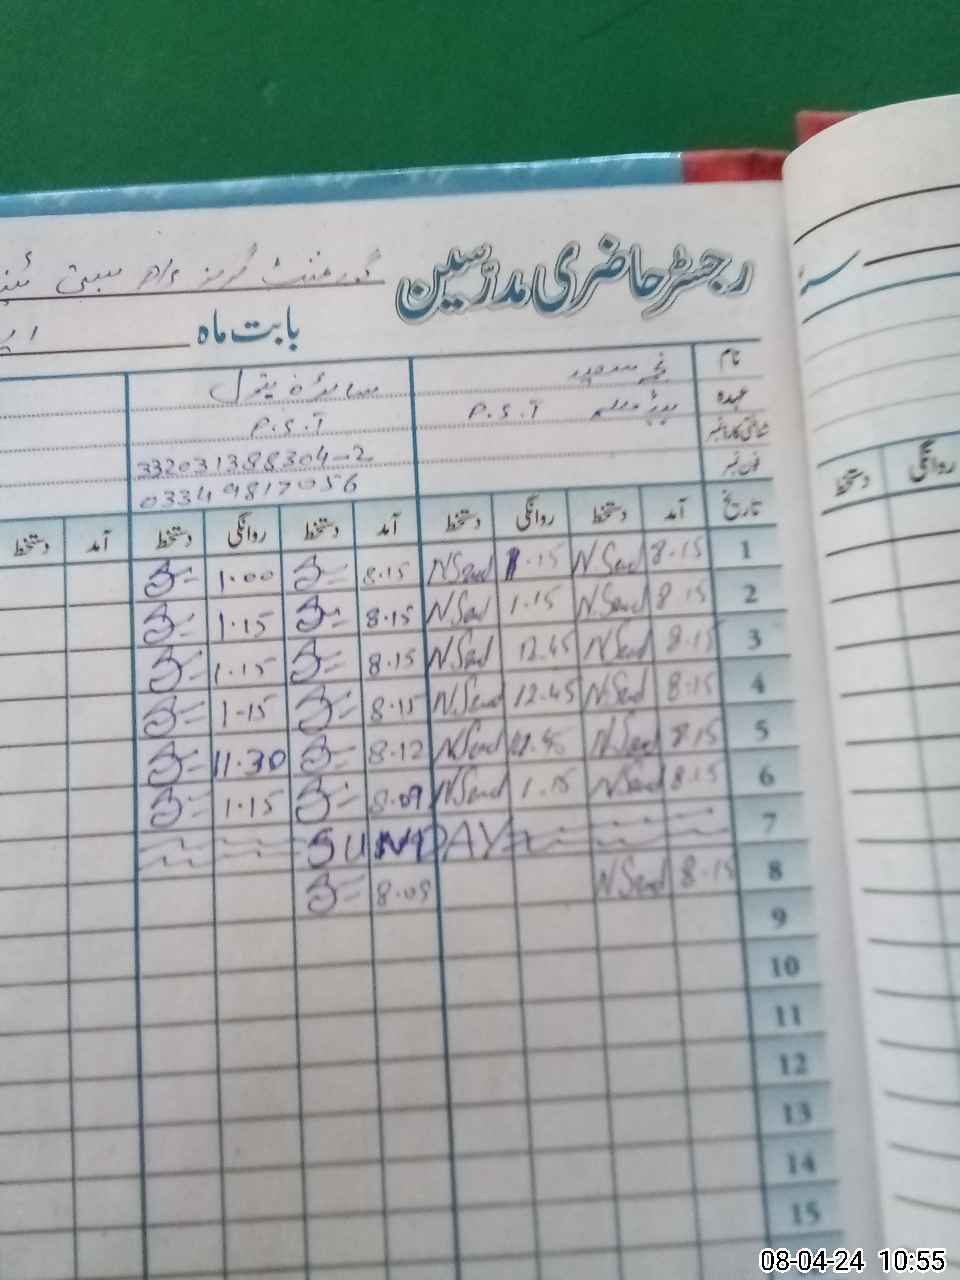 رجسٹر حاضری مدرسین
گورنمنٹ گرلز
بابت ماہ
نام
عہدہ P.S.T
شناختی کارڈ نمبر
فون نمبر
سائرہ بتول
P.S.T
332031388304-2
03349817056
تاریخ آمد دستخط روانگی دستخط آمد دستخط روانگی دستخط آمد دستخط
1 8.15 N.Saed 1.15 N.Saed 8.15 1.00
2 8.15 N.Saed 1.15 N.Saed 8.15 1.15
3 8.15 N.Saed 12.45 N.Saed 8.15 1.15
4 8.15 N.Saed 12.45 N.Saed 8.15 1-15
5 8.15 N.Saed N.Saed 8.12 11.30
6 8.15 N.Saed 1.15 N.Saed 8.09 1.15
7 SUNDAY
8 8.15 N.Saed 8.05
9
10
11
12
13
14
15
روانگی دستخط
08-04-24 10:55